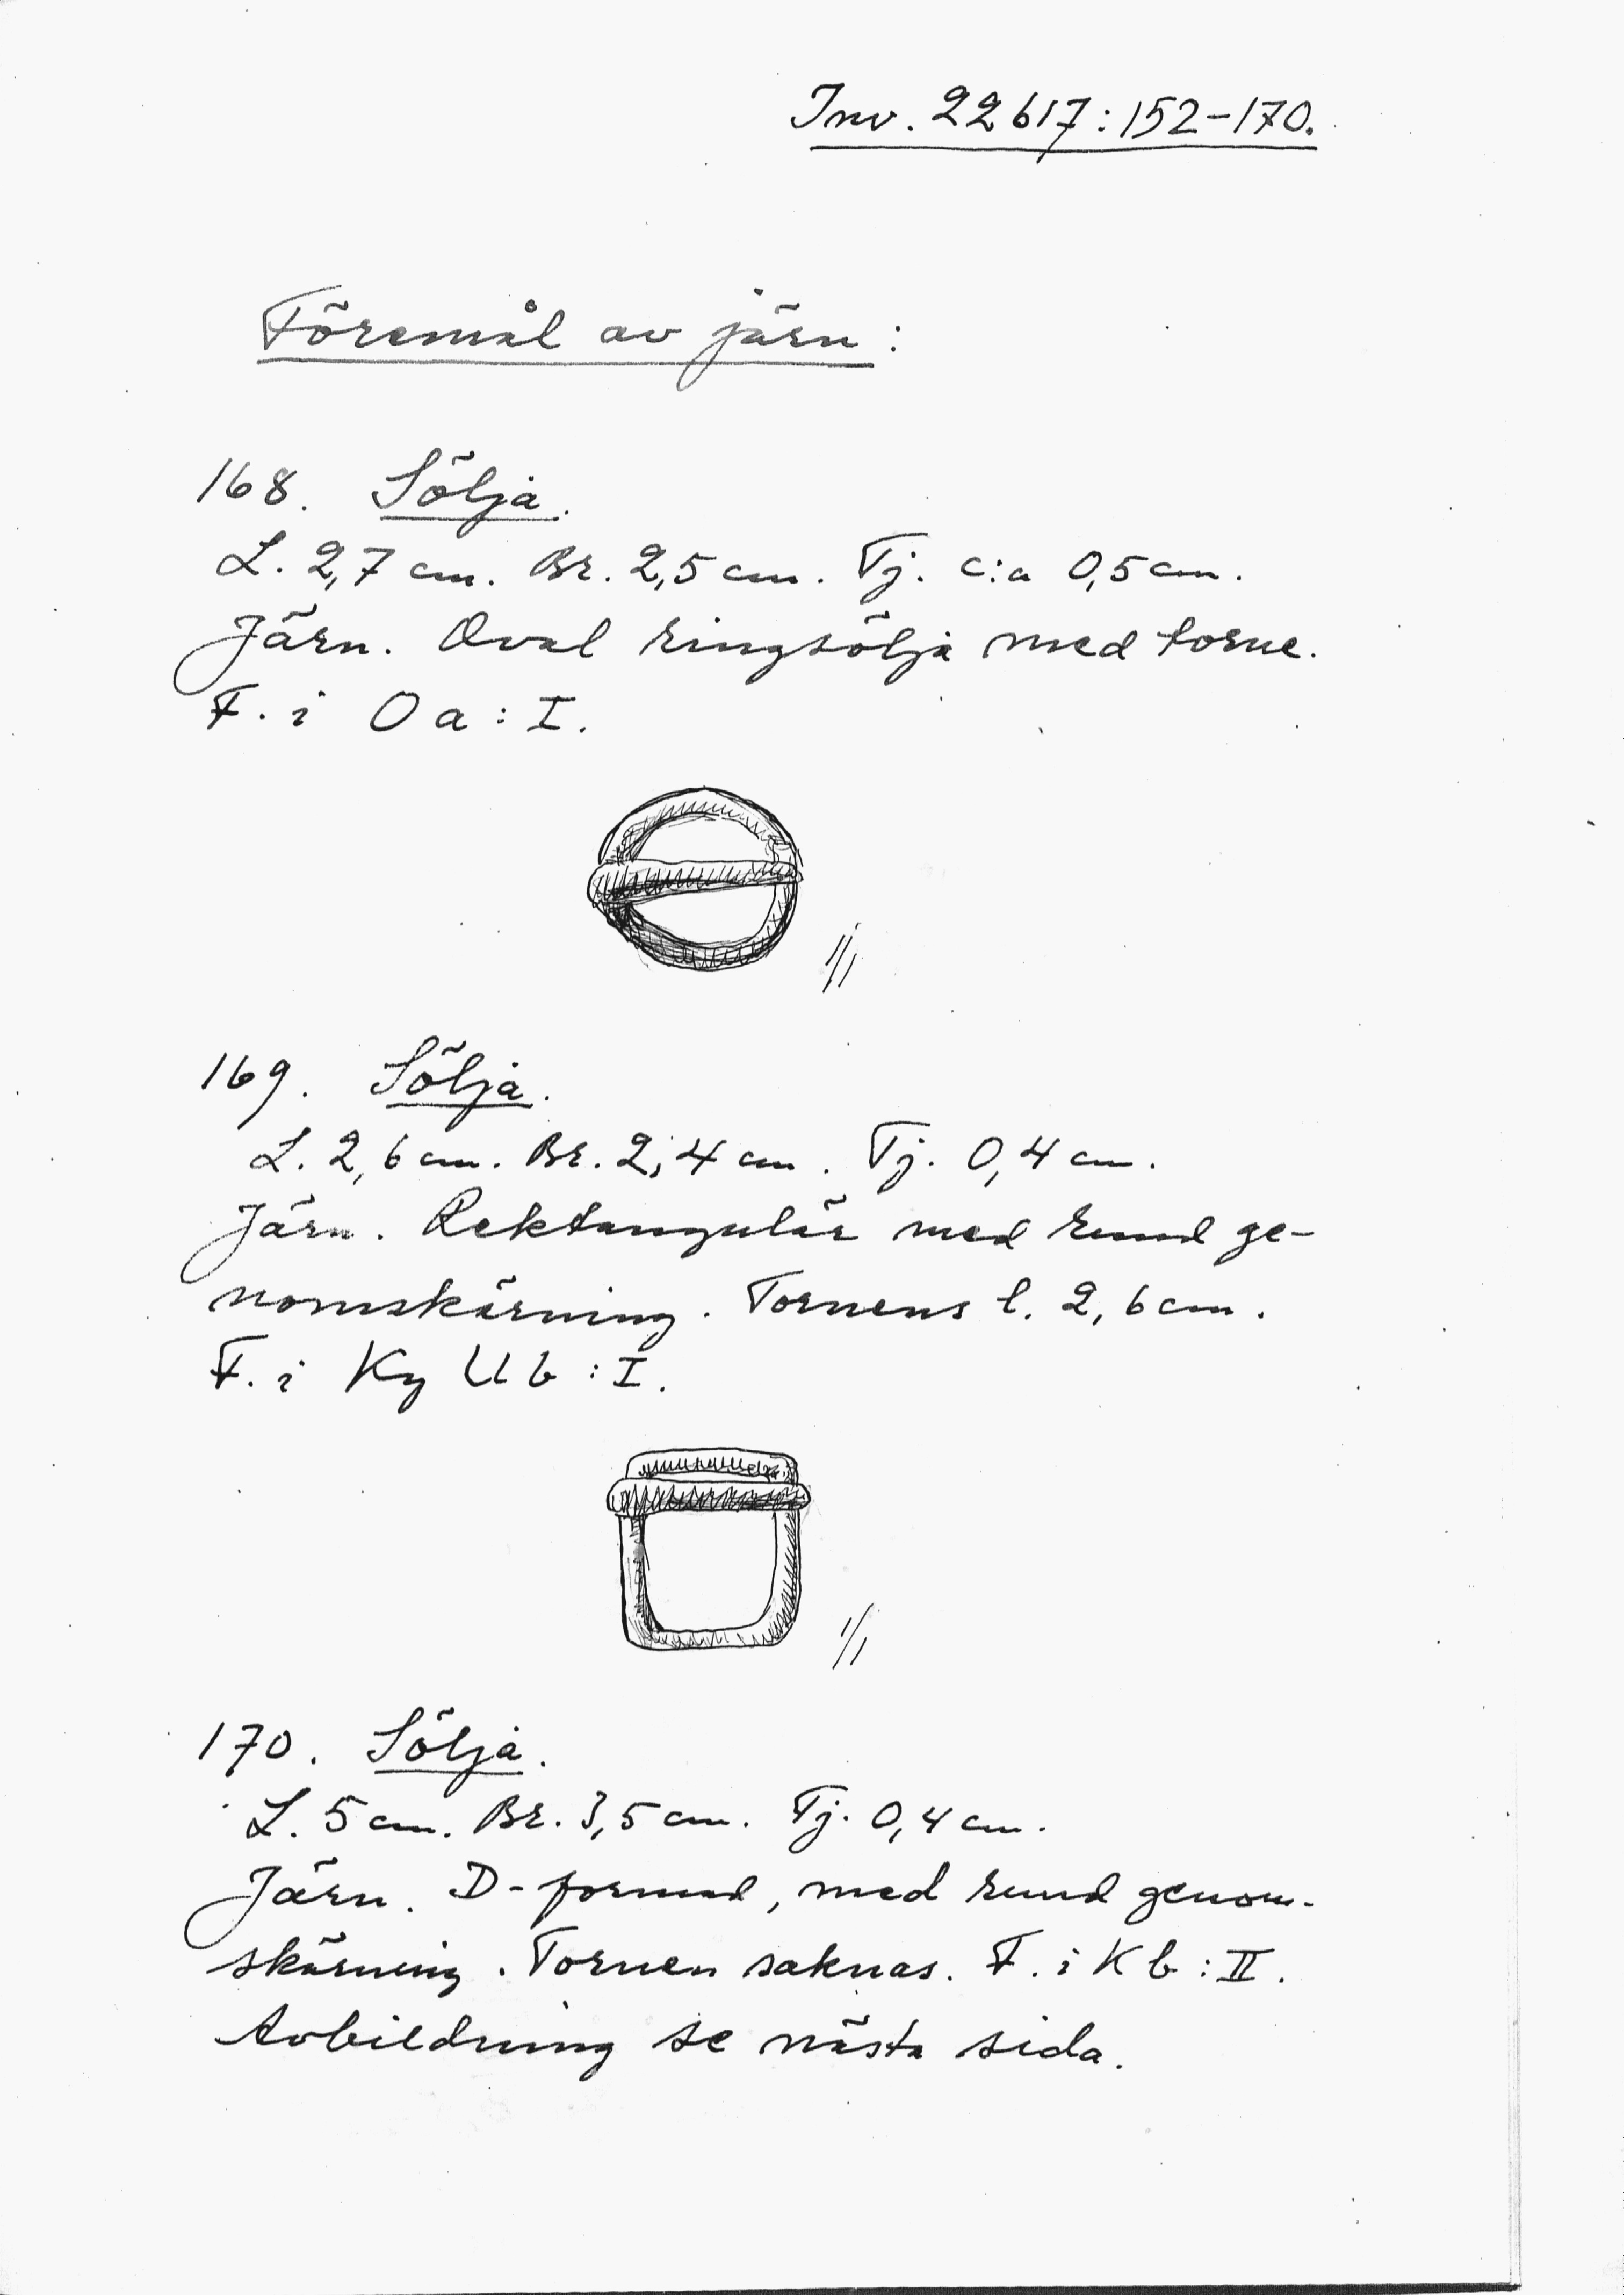 Inv. 22617:152-170.
Föremål av järn:
168. Sölja.
L. 2,7 cm. Br. 2,5 cm. Tj. c:a 0,5 cm.
Järn. Oval ringsölja med torne.
F. i Oa : I.
1/1
169. Sölja.
L. 2,6 cm. Br. 2,4 cm. Tj. 0,4 cm.
Järn. Rektangulär med rund ge-
nomskärning. Tornens l. 2,6 cm.
F. i Ky Ub : I.
1/1
170. Sölja.
L. 5 cm. Br. 3,5 cm. Tj. 0,4 cm.
Järn. D-formad, med rund genom-
skärning. Tornen saknas. F. i Kb : II.
Avbildning se nästa sida.